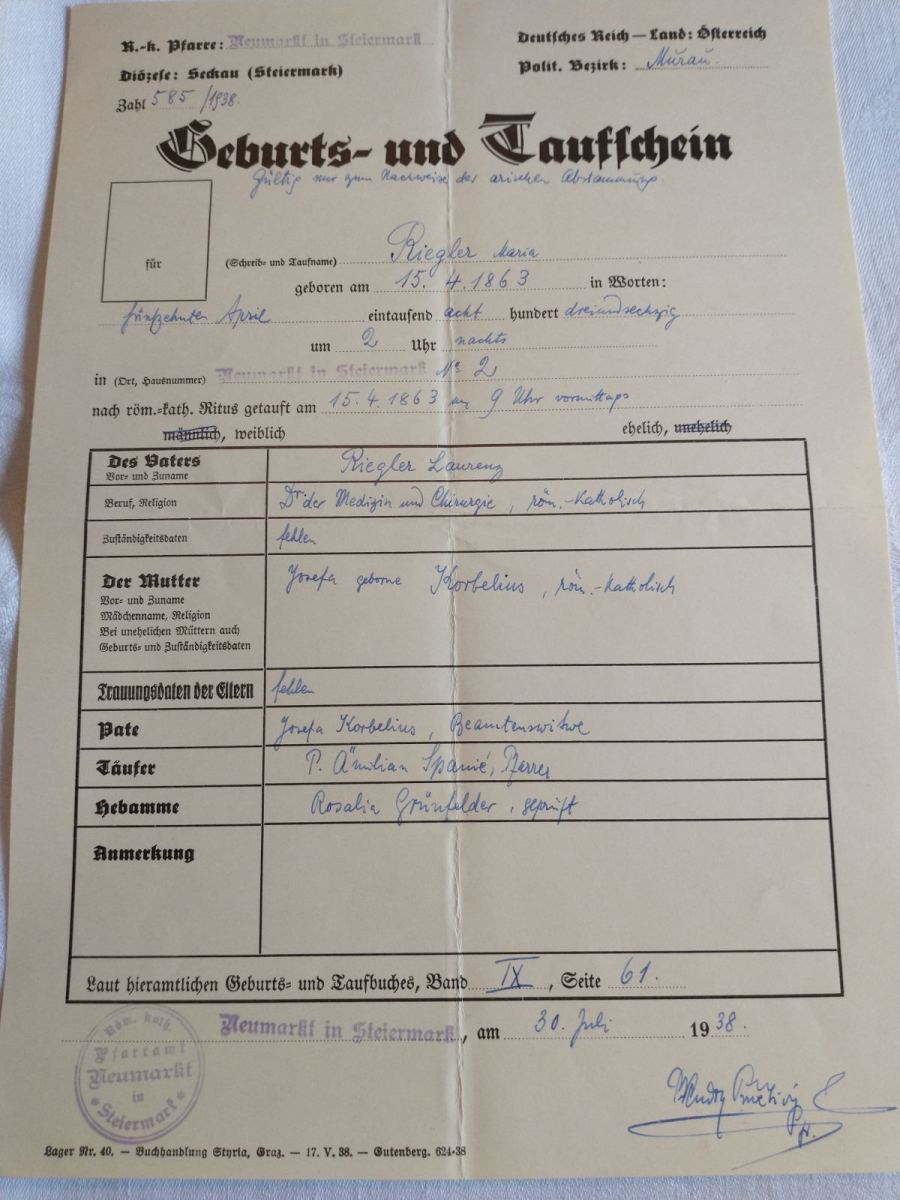 R.-k. Pfarre: Neumarkt in Steiermark
Deutsches Reich — Land: Österreich
Diözese: Seckau (Steiermark)
Polit. Bezirk: Murau.
Zahl 585/1938.
Geburts- und Taufschein
Gültig nur zum Nachweise der arischen Abstammung.
für
(Schreib- und Taufname) Riegler Maria
geboren am 15. 4. 1863 in Worten:
fünfzehnten April eintausend acht hundert dreiundsechzig
um 2 Uhr nachts
in (Ort, Hausnummer) Neumarkt in Steiermark No 2
nach röm.-kath. Ritus getauft am 15. 4. 1863 um 9 Uhr vormittags
männlich, weiblich ehelich, unehelich
Des Vaters Riegler Laurenz
Vor- und Zuname
Beruf, Religion Dr der Medizin und Chirurgie, röm.-katholisch
Zuständigkeitsdaten fehlen
Der Mutter Josefa geborne Korbelius, röm.-katholisch
Vor- und Zuname
Mädchenname, Religion
Bei unehelichen Müttern auch
Geburts- und Zuständigkeitsdaten
Trauungsdaten der Eltern fehlen
Pate Josefa Korbelius, Beamtenswitwe
Täufer P. Ämilian Spanić, Pfarrer
Hebamme Rosalia Grünfelder, geprüft
Anmerkung
Laut hieramtlichen Geburts- und Taufbuches, Band IX, Seite 61.
Neumarkt in Steiermark, am 30. Juli 1938.
Röm. kath.
Pfarramt
Neumarkt
in
Steiermark
Lager Nr. 40. — Buchhandlung Styria, Graz. — 17. V. 38. — Gutenberg. 624-38